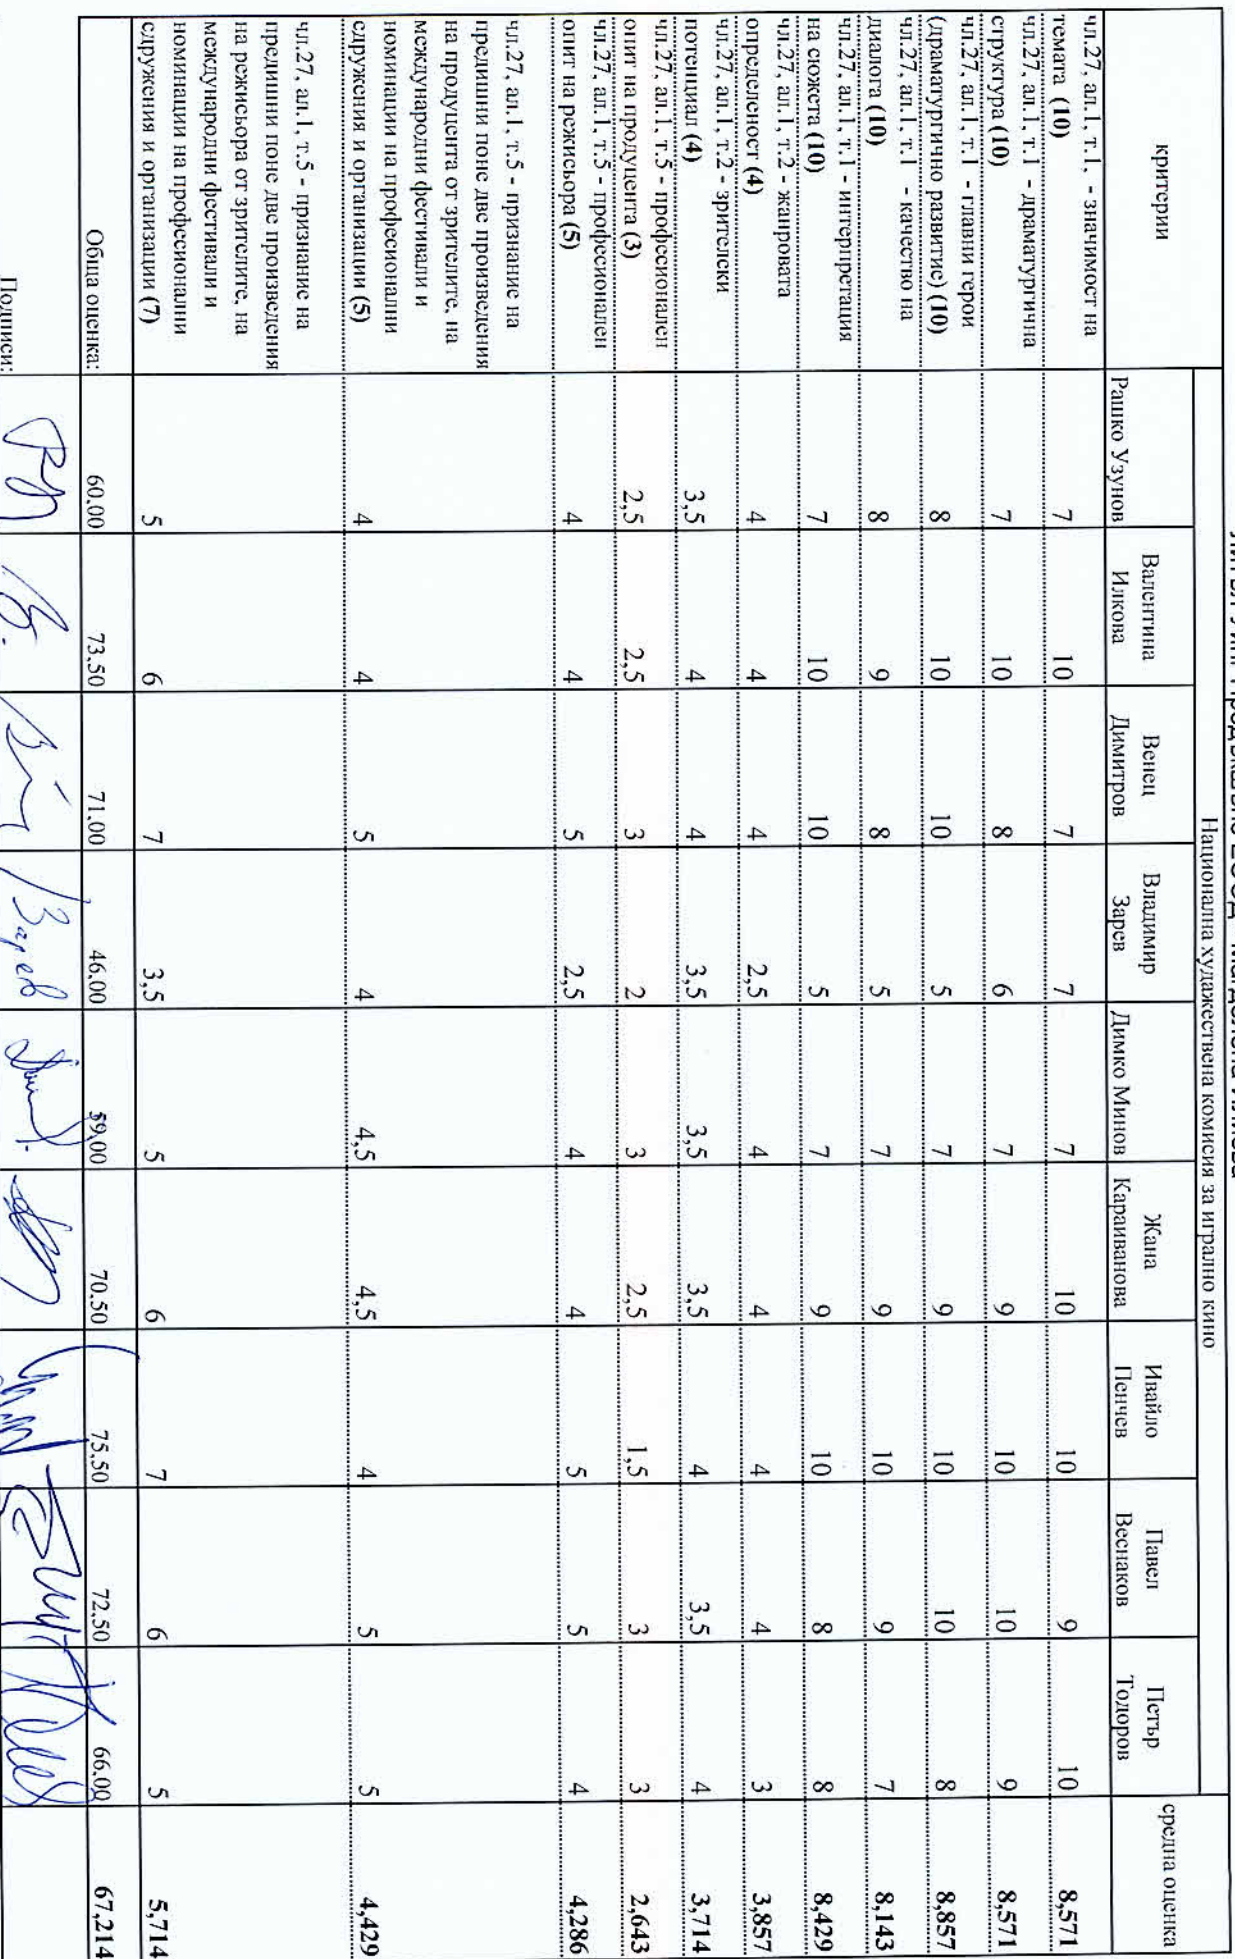 Национална художествена комисия за игрално кино
критерии
Рашко Узунов
Валентина Илкова
Венец Димитров
Владимир Зарев
Димко Минов
Жана Караиванова
Ивайло Пенчев
Павел Веснаков
Петър Тодоров
средна оценка
чл.27, ал.1, т.1. - значимост на
темата (10) 7 10 7 7 7 10 10 9 10 8,571
чл.27, ал.1, т.1 - драматургична
структура (10) 7 10 8 6 7 9 10 10 9 8,571
чл.27, ал.1, т.1 - главни герои
(драматургично развитие) (10) 8 10 10 5 7 9 10 10 8 8,857
чл.27, ал.1, т.1 - качество на
диалога (10) 8 9 8 5 7 9 10 9 7 8,143
чл.27, ал.1, т.1 - интерпретация
на сюжета (10) 7 10 10 5 7 9 10 8 8 8,429
чл.27, ал.1, т.2 - жанровата
определеност (4) 4 4 4 2,5 4 4 4 4 3 3,857
чл.27, ал.1, т.2 - зрителски
потенциал (4) 3,5 4 4 3,5 3,5 3,5 4 3,5 4 3,714
чл.27, ал.1, т.5 - професионален
опит на продуцента (3) 2,5 2,5 3 2 3 2,5 1,5 3 3 2,643
чл.27, ал.1, т.5 - професионален
опит на режисьора (5) 4 4 5 2,5 4 4 5 5 4 4,286
чл.27, ал.1, т.5 - признание на
предишни поне две произведения
на продуцента от зрителите, на
международни фестивали и
номинации на професионални
сдружения и организации (5) 4 4 5 4 4,5 4,5 4 5 5 4,429
чл.27, ал.1, т.5 - признание на
предишни поне две произведения
на режисьора от зрителите, на
международни фестивали и
номинации на професионални
сдружения и организации (7) 5 6 7 3,5 5 6 7 6 5 5,714
Обща оценка: 60.00 73.50 71.00 46.00 59.00 70.50 75.50 72.50 66.00 67,214
Подписи:
Зарев